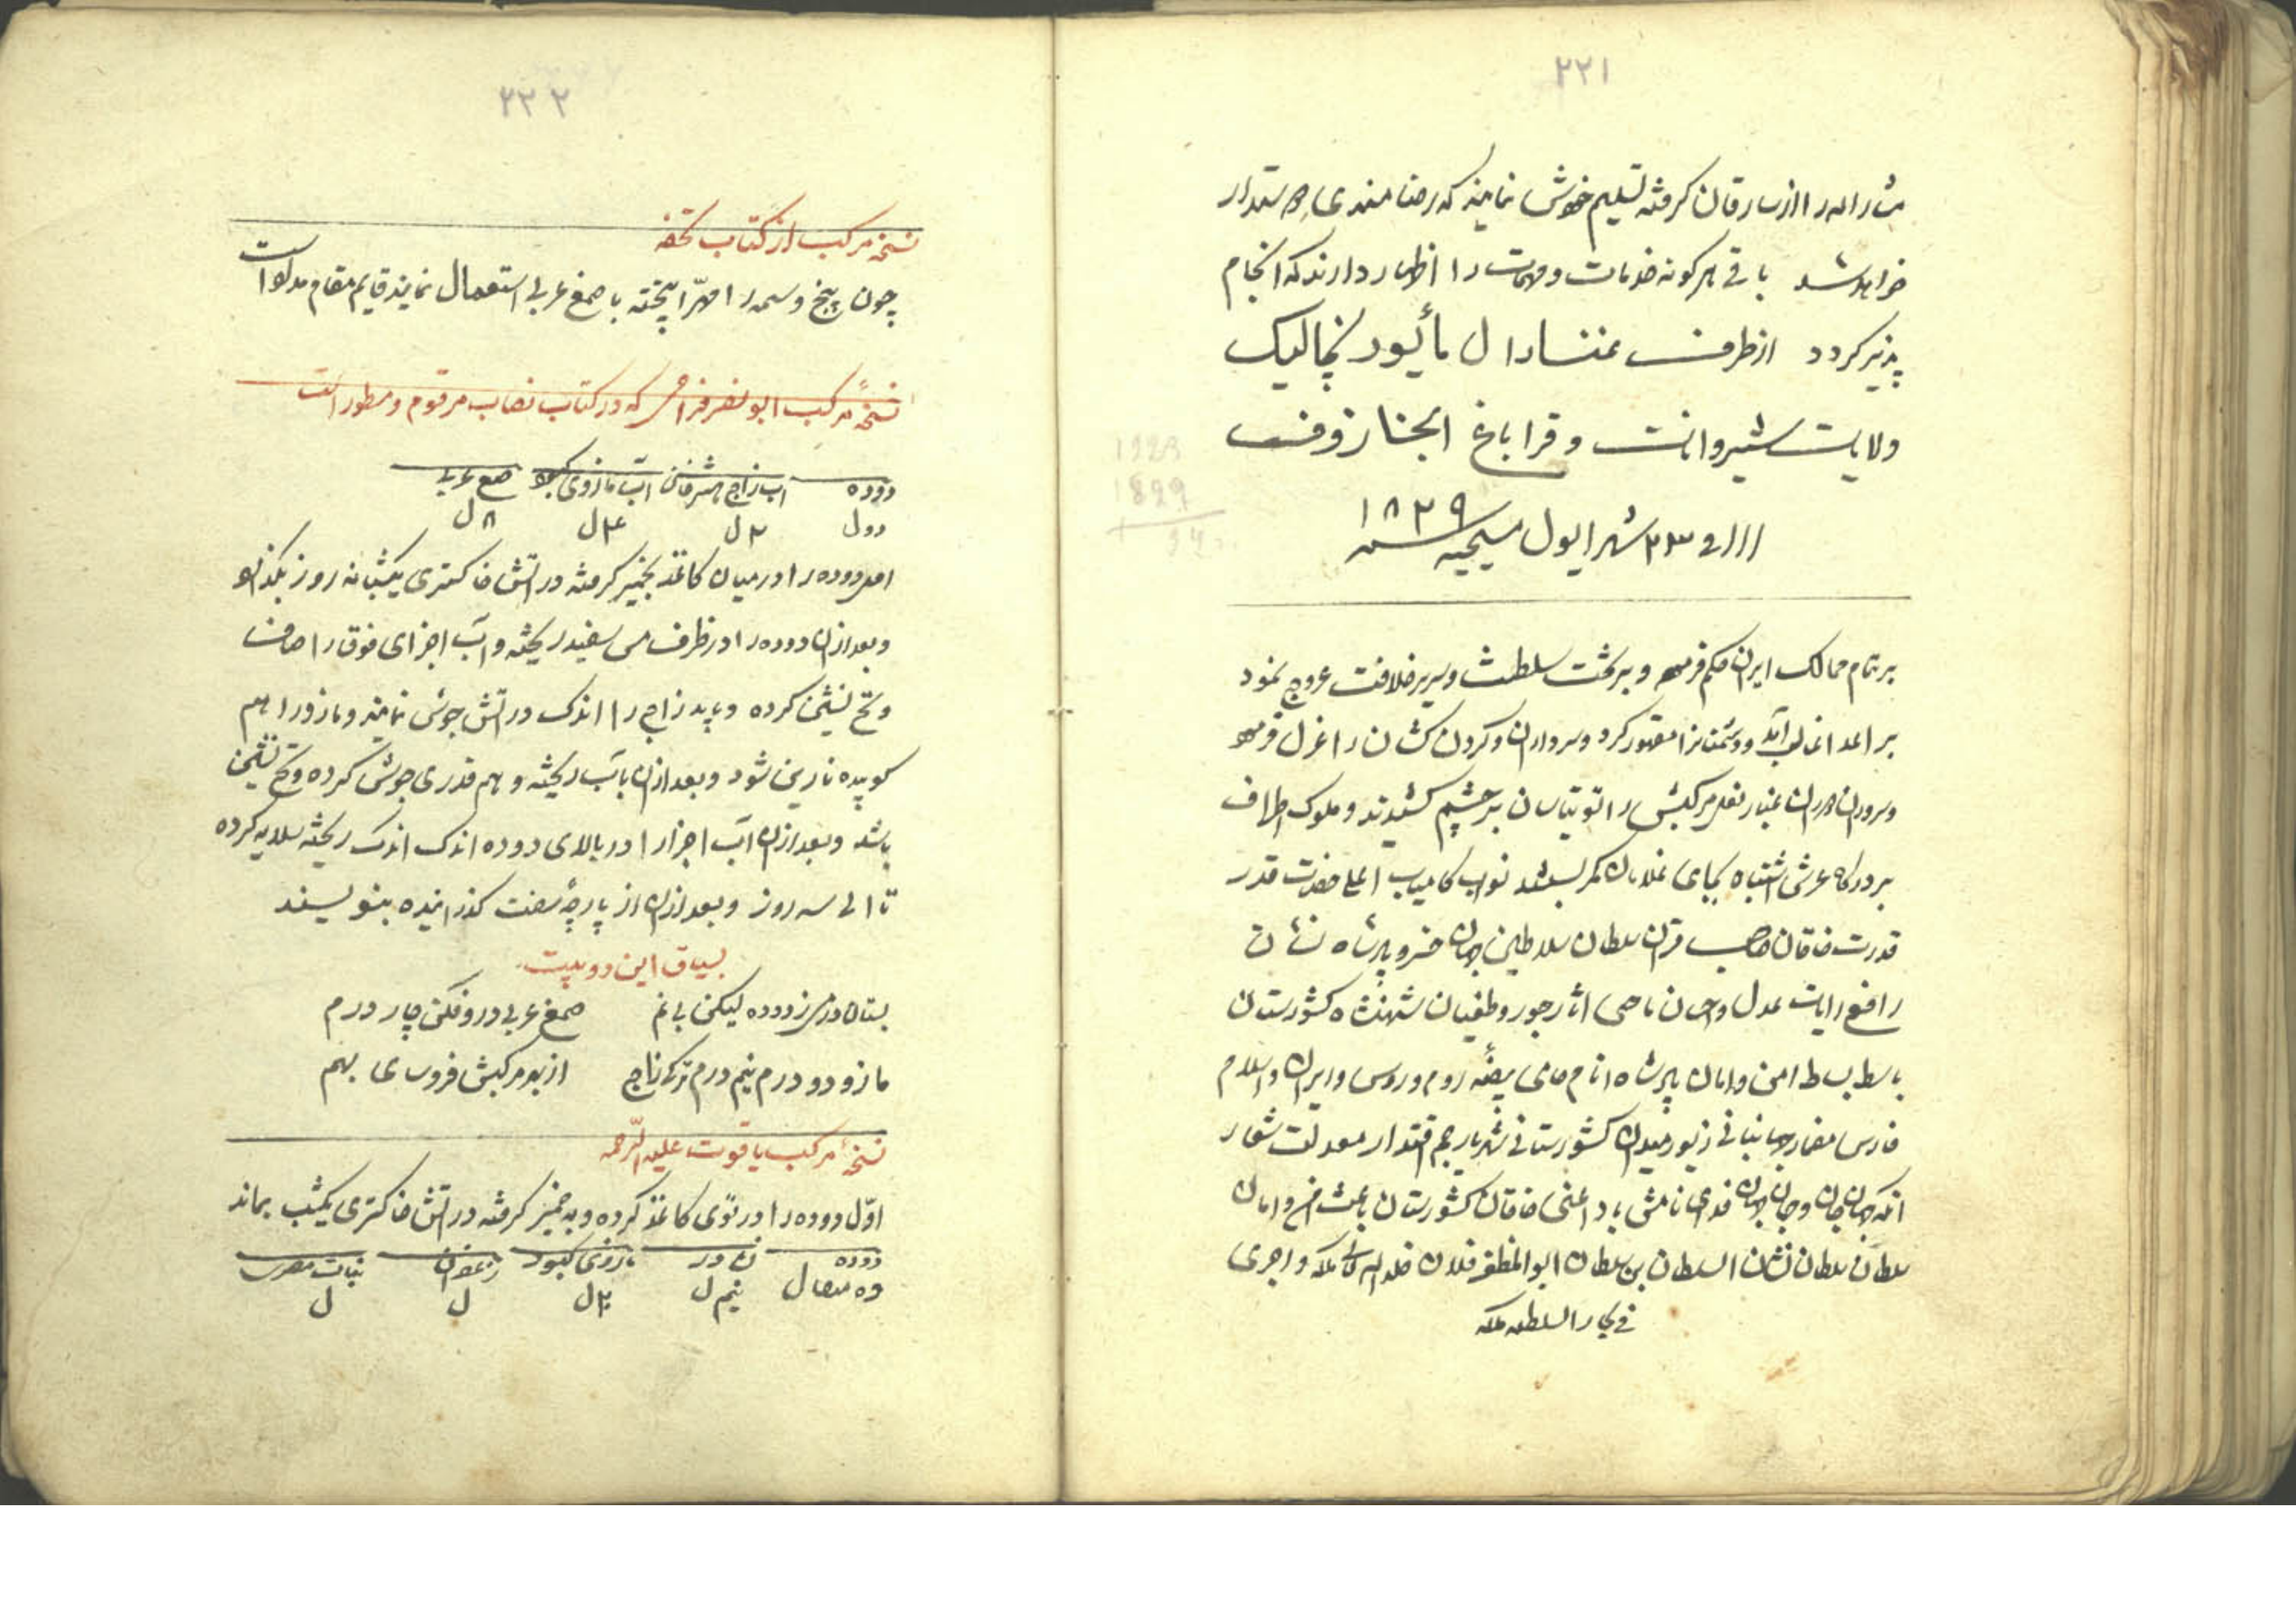 ۲۲۱
مشار الیه را از سارقان گرفته تسلیم خویش نمایند که رضامندی
خواهد شد باقی هرگونه خدمات و مهمات را اظهار دارند که انجام
پذیر گردد از طرف غنارال مأیور نچالیک
ولایت شیروانات و قراباغ ابخازوف
۲۳ شهر ایول سنه مسیحیه ۱۸۲۹
1823
1829
بر تمام ممالک ایران حکم فرما و بر تخت سلطنت و سریر خلافت عروج نمود
بر اعدا غالب آمد و دشمنانرا مقهور کرد و سرداران و گردن کشان را عزل
غبار نعل مرکبش را توتیاسان بر چشم کشیدند و ملوک اطراف
بر درگاه عرش اشتباه بجای غلامان کمر بستند نواب کامیاب اعلیحضرت قدر
قدرت خاقان صاحب قران سلطان سلاطین جهان خسرو پادشاه نشان
رافع رایات عدل و احسان ماحی آثار جور و طغیان شهنشاه کشورستان
باسط بساط امن و امان پادشاه انام حامی بیضه روم و روس و ایران و اسلام
فارس مضمار جهانبانی زیور میدان کشورستانی شهریار جم اقتدار معدلت شعار
آنکه جهان جان و جان جهان فدای نامش باد اعنی خاقان کشورستان باعث امن و امان
سلطان سلطان نشان السلطان بن سلطان ابوالمظفر فلان خلد الله ملکه و اجری
فی بحار السلطنه فلکه
۲۲۲
نسخه مرکب از کتاب تحفه
چون بیخ وسمه را مهرّا پخته با صمغ عربی استعمال نمایند قایم مقام مداد است
نسخهٔ مرکب ابو نصر فراهی که در کتاب نصاب مرقوم و مسطور است
دوده آب زاج آب مازوی کبود صمغ عربی
دول ۲ل ۲۴ل ۸ل
اول دوده را در میان کاغذ بخمیر گرفته در آتش خاکستری یکشبانه روز بگذارند
و بعد از آن دوده را در ظرف مس سفید ریخته و آب اجزای فوق را صاف
و تح نشین کرده و باید زاج را اندک در آتش جوش نمایند و مازو را هم
کوبیده تا رین شود و بعد از آن با آب ریخته و هم قدری جوش کرده و تح نشین
باشد و بعد از آن آب اجزا را در بالای دوده اندک اندک ریخته سلایه کرده
تا الی سه روز و بعد از آن از پارچهٔ سفت گذرانیده بنویسند
بسیاق این دو بیت
بستان درمی ز دوده لیکن بی نم صمغ عربی درو فکن چار درم
مازو دو درم نیم درم ترکی زاج از بهر مرکبش فروسای بهم
نسخهٔ مرکب یاقوت علیه الرّحمه
اوّل دوده را در توی کاغذ کرده و به خمیر گرفته در آتش خاکستری یکشب بماند
دوده مازوی کبود زعفران نبات مصری
ده مثقال نیم ل ۲۰ل ل ل